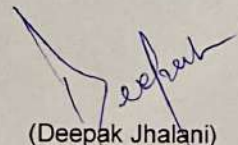 Deepak
(Deepak Jhalani)